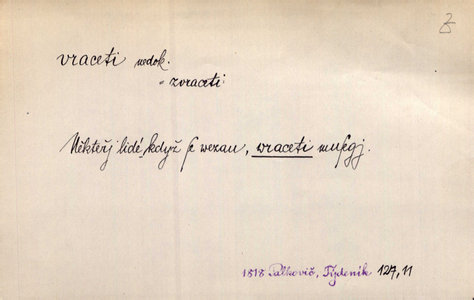 vraceti nedok.
= zvraceti
Někteřj lidé, když se wezau, wraceti musegj.
1818 Palkovič, Týdeník 127, 11